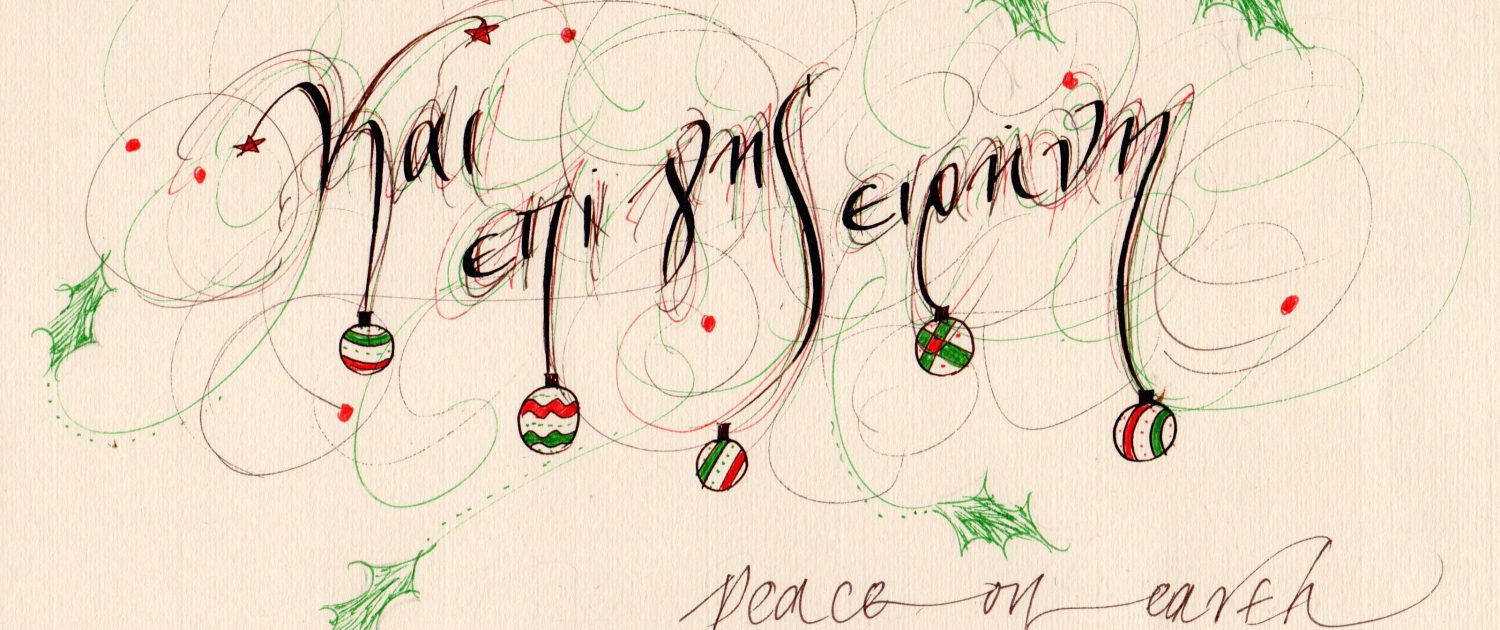 και επι γης ειρηνη
peace on earth